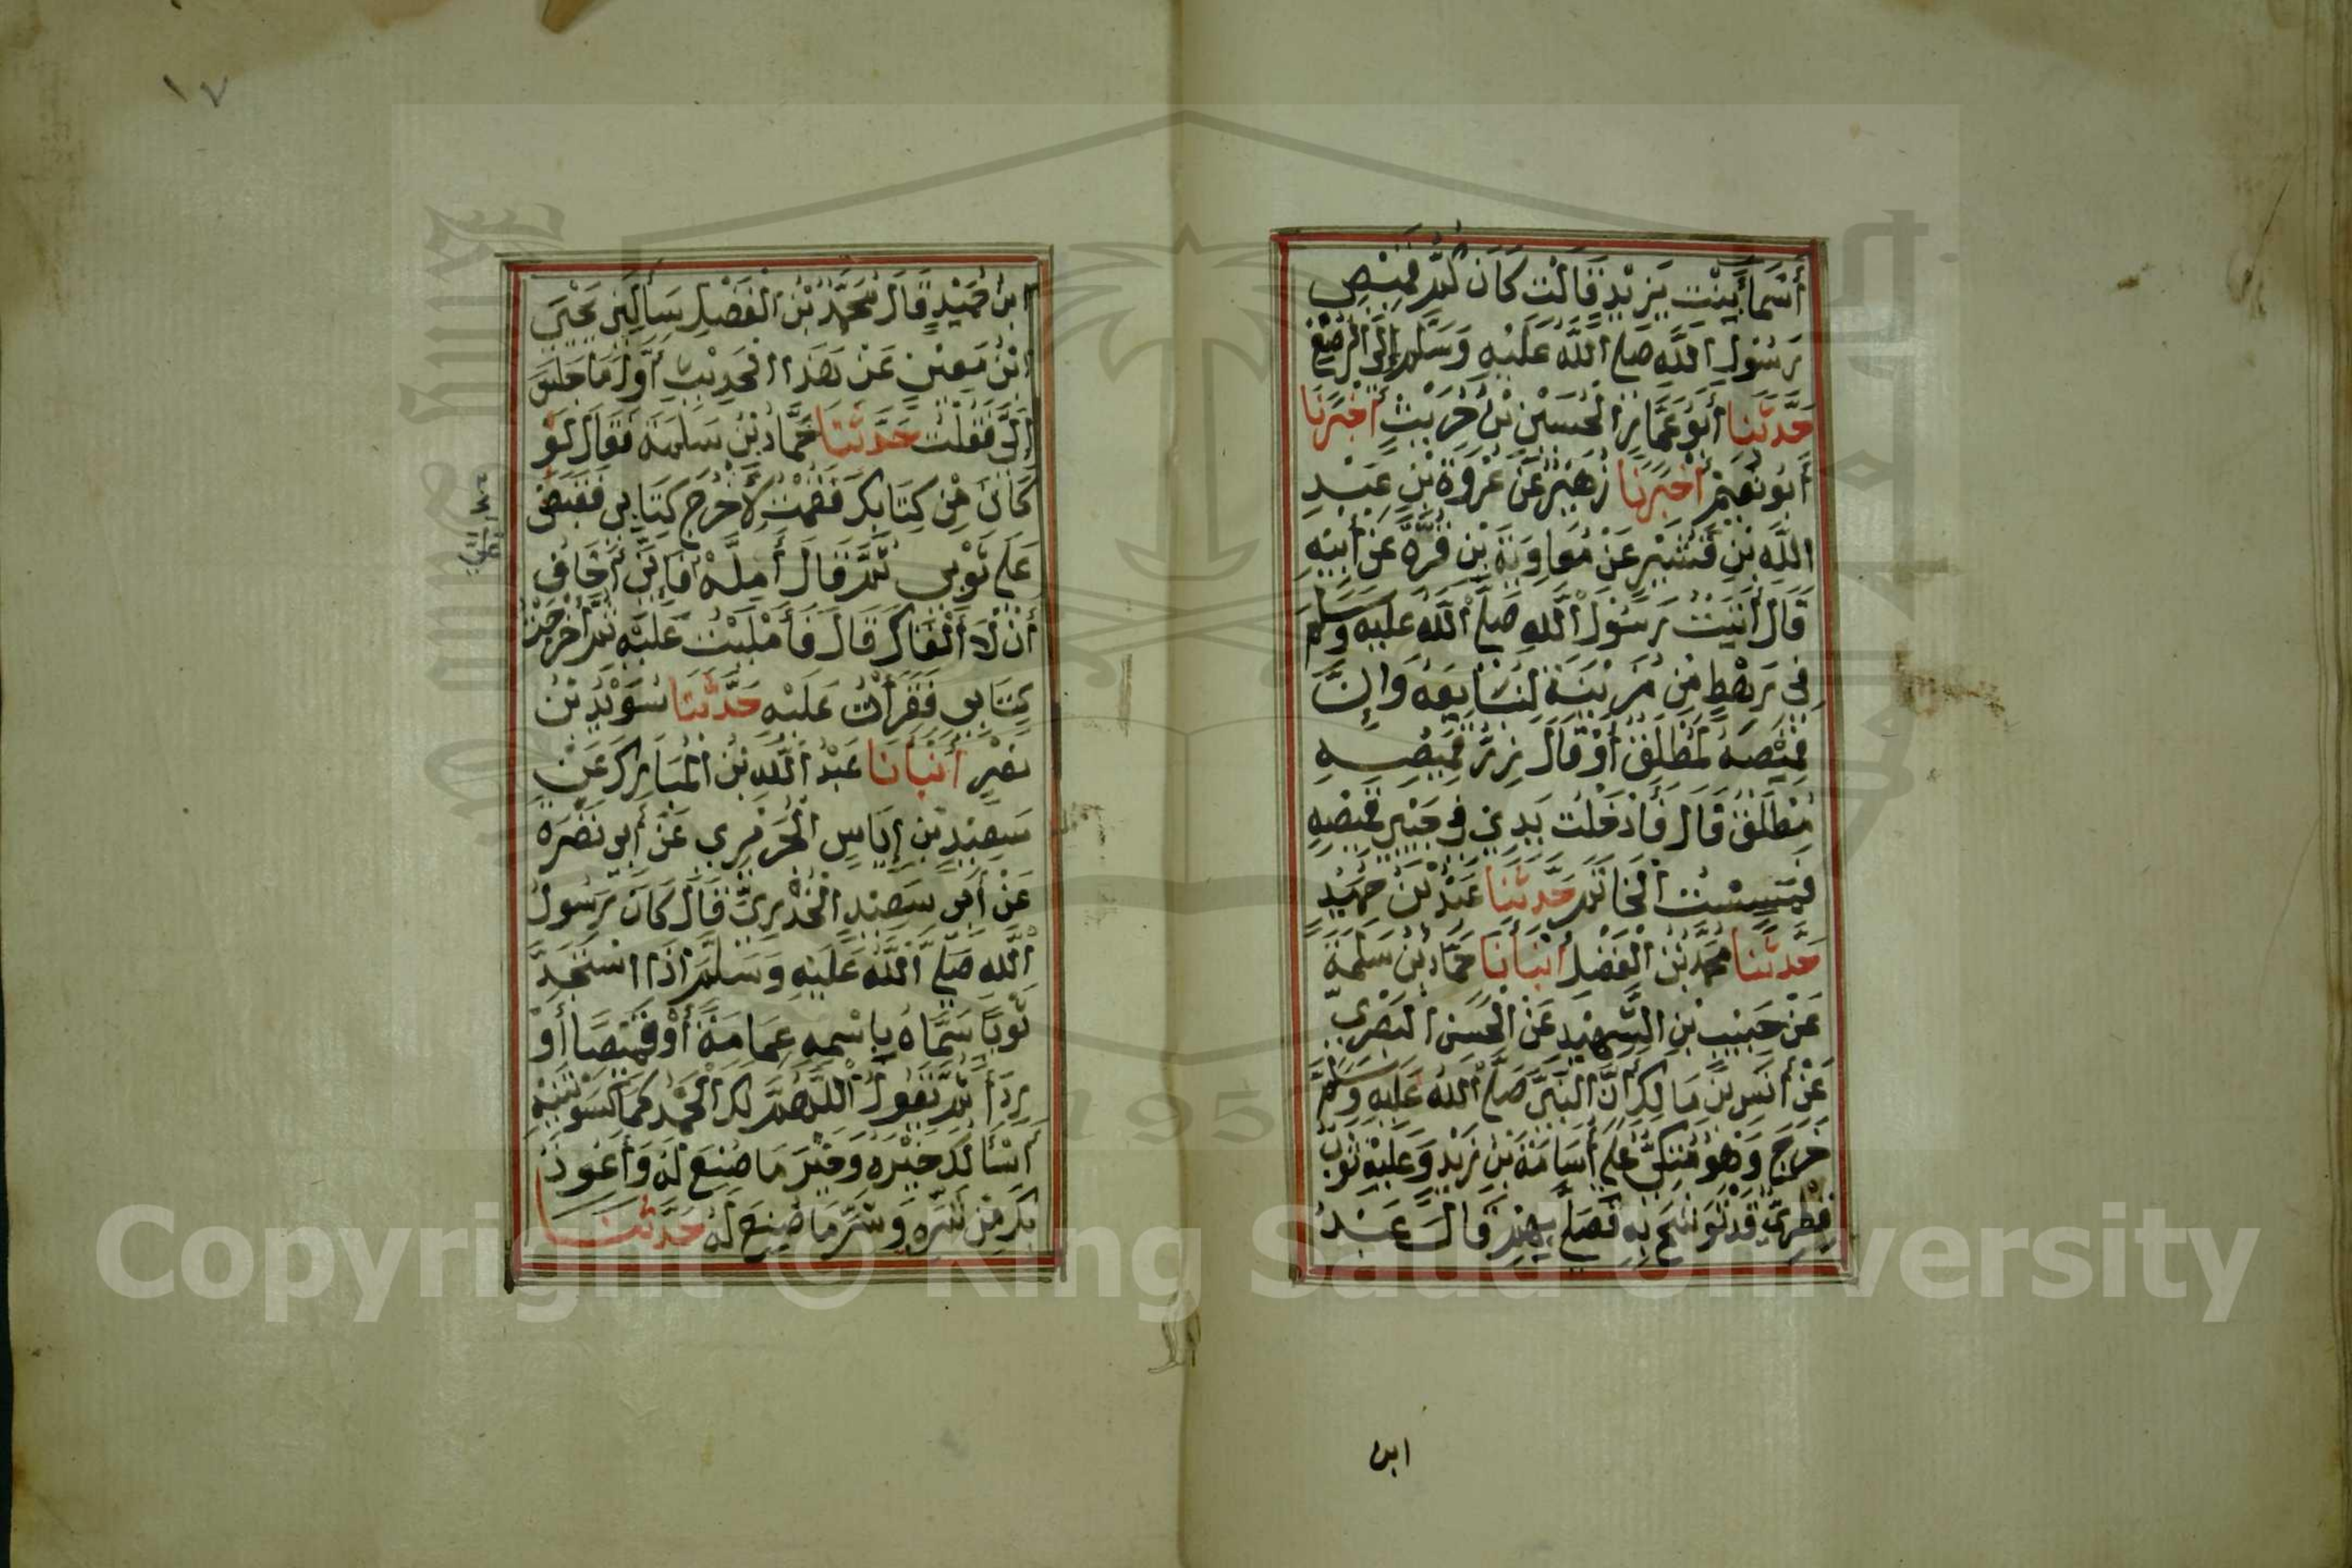 أَسْمَاءَ بِنْتِ يَزِيْدٍ قَالَتْ كَانَ كُمُّ قَمِيْصِ
رَسُولِ اللَّهِ صَلَّى اللَّهُ عَلَيْهِ وَسَلَّمَ إِلَى الرُّصْغِ
حَدَّثَنَا أَبُو عَمَّارٍ الْحُسَيْنُ بْنُ حُرَيْثٍ أَخْبَرَنَا
أَبُو نُعَيْمٍ أَخْبَرَنَا زُهَيْرٌ عَنْ عُرْوَةَ بْنِ عَبْدِ
اللَّهِ بْنِ قُشَيْرٍ عَنْ مُعَاوِيَةَ بْنِ قُرَّةَ عَنْ أَبِيْهِ
قَالَ أَتَيْتُ رَسُولَ اللَّهِ صَلَّى اللَّهُ عَلَيْهِ وَسَلَّمَ
فِي رَهْطٍ مِنْ مُزَيْنَةَ لِنُبَايِعَهُ وَإِنَّ
قَمِيْصَهُ لَمُطْلَقٌ أَوْ قَالَ زِرُّ قَمِيْصِهِ
مُطْلَقٌ قَالَ فَأَدْخَلْتُ يَدِي فِي جَيْبِ قَمِيْصِهِ
فَمَسِسْتُ الْخَاتَمَ حَدَّثَنَا عَبْدُ بْنُ حُمَيْدٍ
حَدَّثَنَا مُحَمَّدُ بْنُ الْفَضْلِ أَنْبَأَنَا حَمَّادُ بْنُ سَلَمَةَ
عَنْ حَبِيْبِ بْنِ الشَّهِيْدِ عَنِ الْحَسَنِ الْبَصْرِيِّ
عَنْ أَنَسِ بْنِ مَالِكٍ أَنَّ النَّبِيَّ صَلَّى اللَّهُ عَلَيْهِ وَسَلَّمَ
خَرَجَ وَهُوَ مُتَّكِئٌ عَلَى أُسَامَةَ بْنِ زَيْدٍ وَعَلَيْهِ ثَوْبٌ
قِطْرِيٌّ قَدْ تَوَشَّحَ بِهِ فَصَلَّى بِهِمْ قَالَ عَبْدُ
ابن
١٧
ابْنُ حُمَيْدٍ قَالَ مُحَمَّدُ بْنُ الْفَضْلِ سَأَلَنِي يَحْيَى
ابْنُ مَعِيْنٍ عَنْ هَذَا الْحَدِيْثِ أَوَّلَ مَا جَلَسَ
إِلَيَّ فَقُلْتُ حَدَّثَنَا حَمَّادُ بْنُ سَلَمَةَ فَقَالَ لَوْ
كَانَ مِنْ كِتَابِكَ فَقُمْتُ لِأُخْرِجَ كِتَابِي فَقَبَضَ
عَلَى ثَوْبِي ثُمَّ قَالَ أَمِلَّهُ فَإِنِّي أَخَافُ
أَنْ لَا أَلْقَاكَ قَالَ فَأَمْلَيْتُ عَلَيْهِ ثُمَّ أَخْرَجْتُ
كِتَابِي فَقَرَأْتُ عَلَيْهِ حَدَّثَنَا سُوَيْدُ بْنُ
نَصْرٍ أَنْبَأَنَا عَبْدُ اللَّهِ بْنُ الْمُبَارَكِ عَنْ
سَعِيْدِ بْنِ إِيَاسٍ الْجُرَيْرِيِّ عَنْ أَبِي نَضْرَةَ
عَنْ أَبِي سَعِيْدٍ الْخُدْرِيِّ قَالَ كَانَ رَسُولُ
اللَّهِ صَلَّى اللَّهُ عَلَيْهِ وَسَلَّمَ إِذَا اسْتَجَدَّ
ثَوْبًا سَمَّاهُ بِاسْمِهِ عِمَامَةً أَوْ قَمِيْصًا أَوْ
رِدَاءً ثُمَّ يَقُولُ اللَّهُمَّ لَكَ الْحَمْدُ كَمَا كَسَوْتَنِيْهِ
أَسْأَلُكَ خَيْرَهُ وَخَيْرَ مَا صُنِعَ لَهُ وَأَعُوذُ
بِكَ مِنْ شَرِّهِ وَشَرِّ مَا صُنِعَ لَهُ حَدَّثَنَا
Copyright © King Saud University
1957